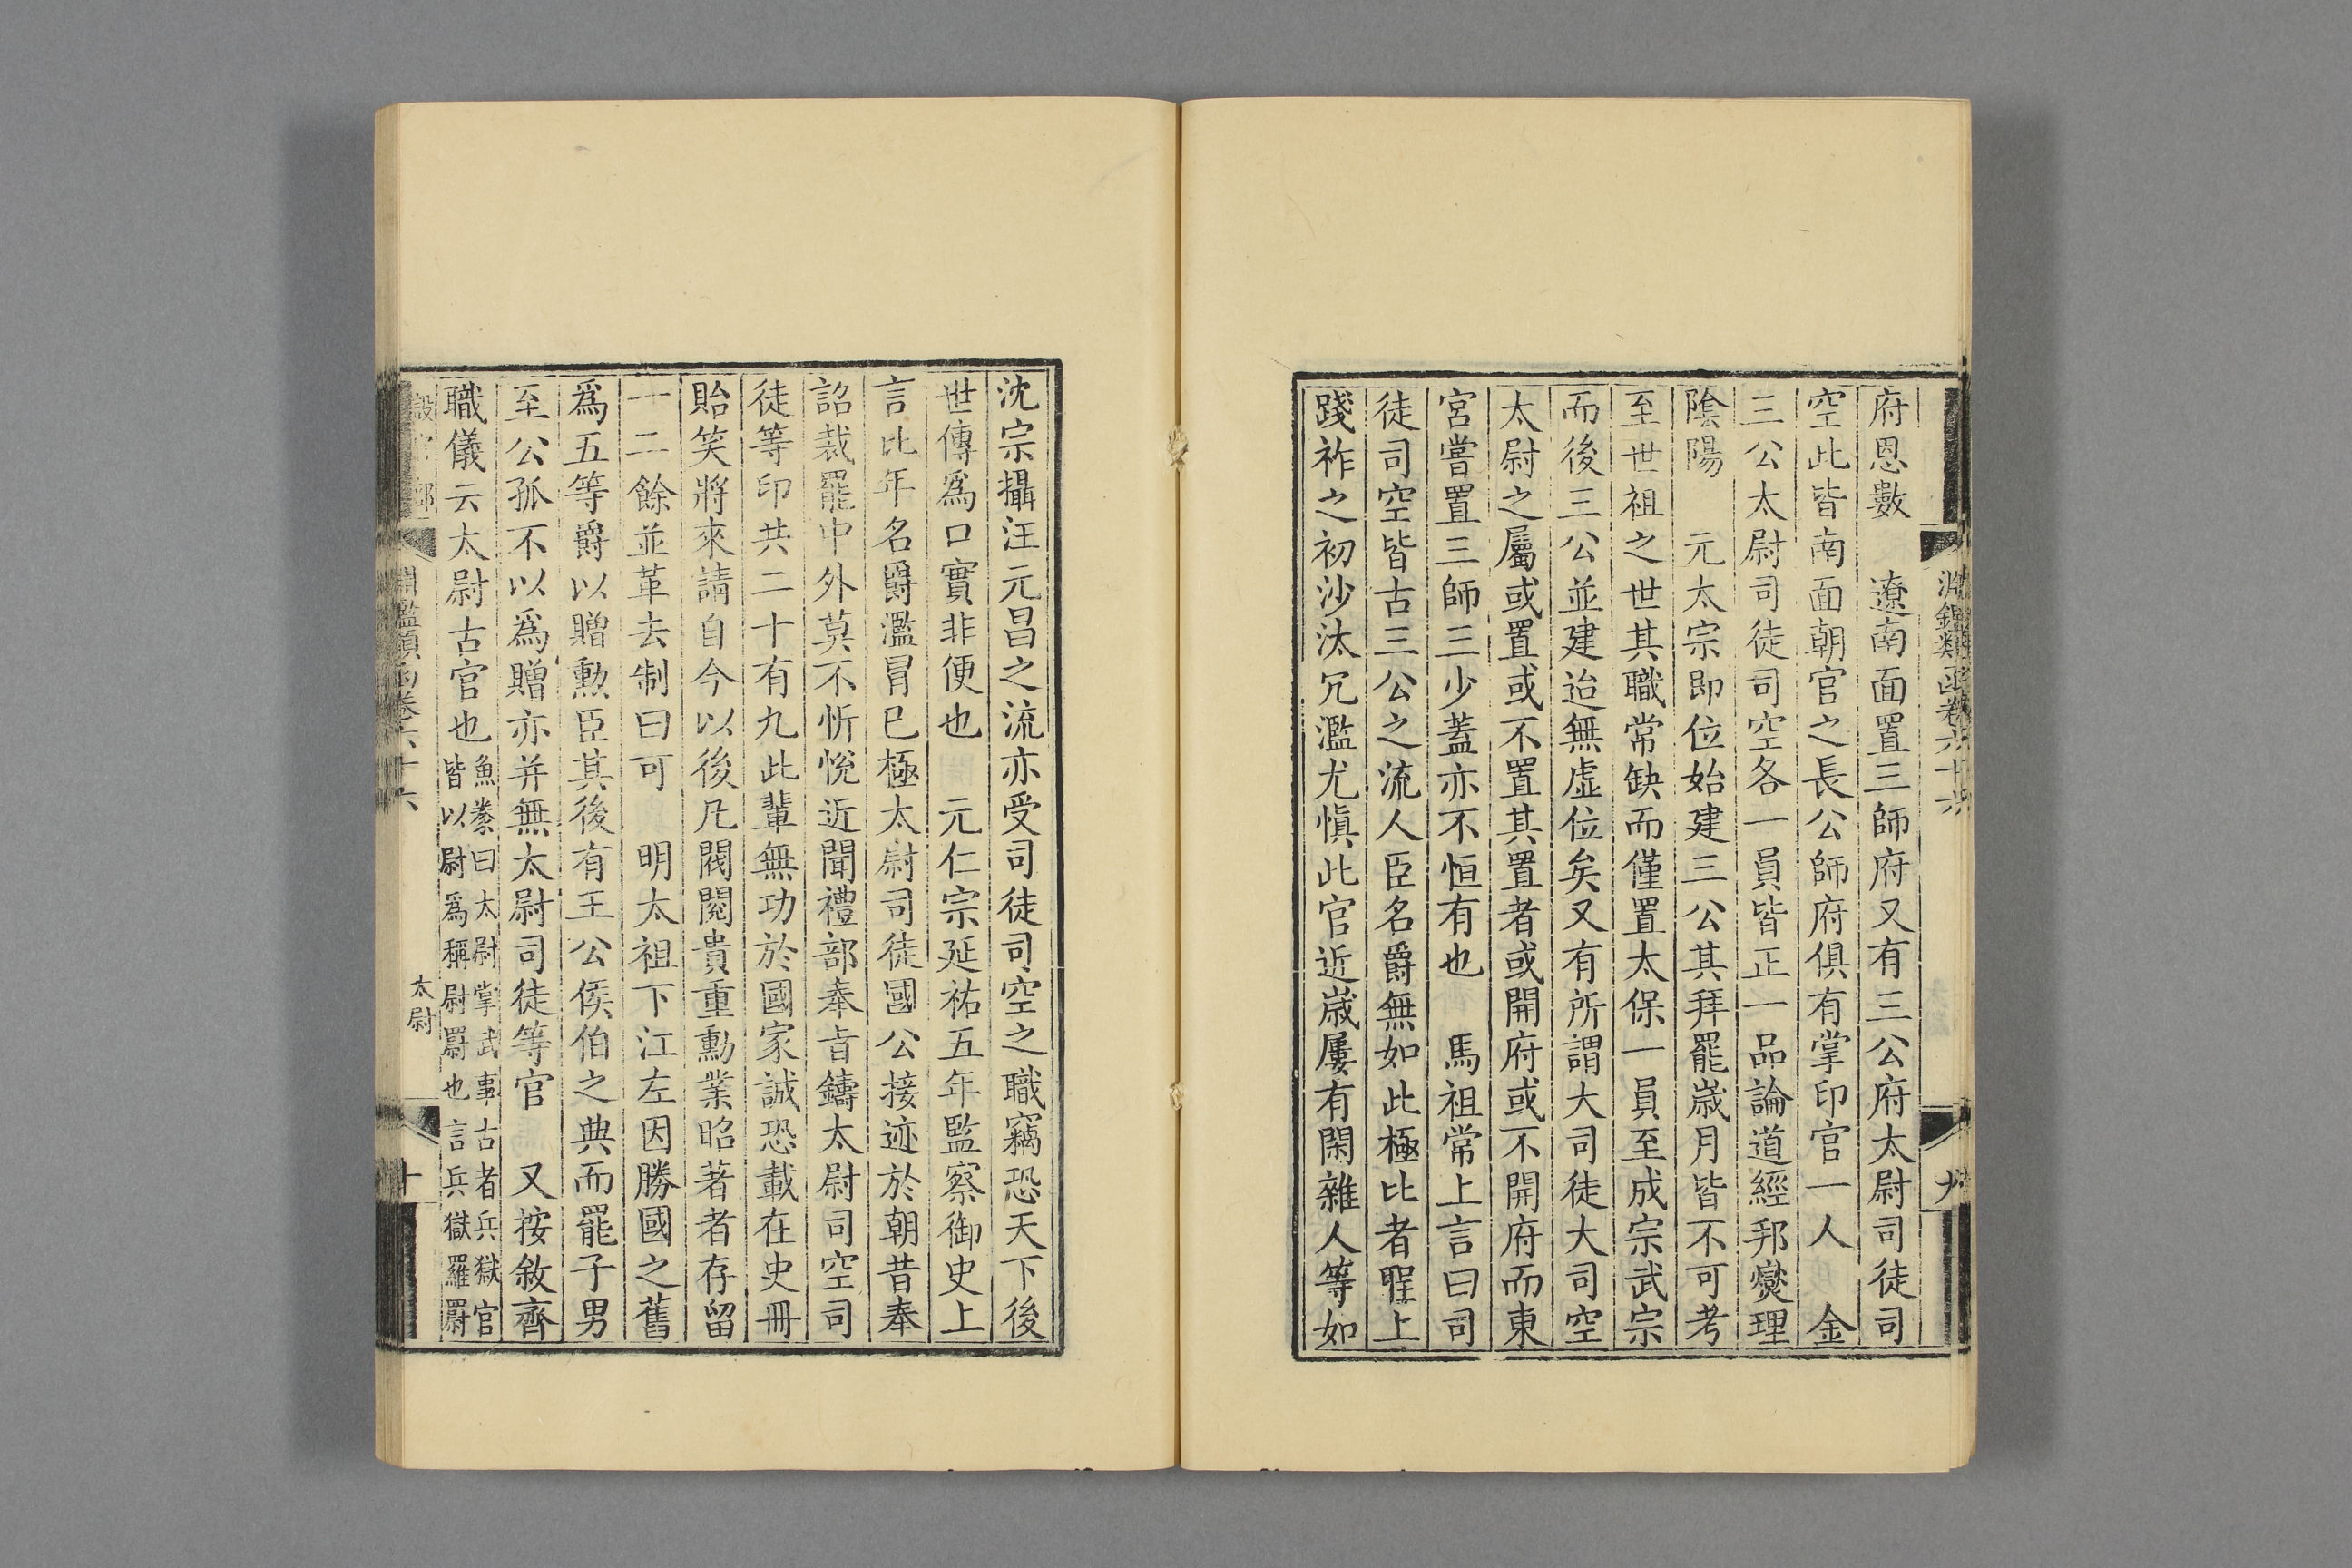 淵鑑類函卷六十六
九
府恩數　遼南面置三師府又有三公府太尉司徒司
空此皆南面朝官之長公師府俱有掌印官一人　金
三公太尉司徒司空各一員皆正一品論道經邦燮理
陰陽　元太宗即位始建三公其拜罷歲月皆不可考
至世祖之世其職常缺而僅置太保一員至成宗武宗
而後三公並建迨無虛位矣又有所謂大司徒大司空
太尉之屬或置或不置其置者或開府或不開府而東
宮嘗置三師三少蓋亦不恒有也　馬祖常上言曰司
徒司空皆古三公之流人臣名爵無如此極比者聖上
踐祚之初沙汰冗濫尤慎此官近歲屢有閑雜人等如
沈宗攝汪元昌之流亦受司徒司空之職竊恐天下後
世傳為口實非便也　元仁宗延祐五年監察御史上
言比年名爵濫冒已極太尉司徒國公接迹於朝昔奉
詔裁罷中外莫不忻悅近聞禮部奉旨鑄太尉司空司
徒等印共二十有九此輩無功於國家誠恐載在史冊
貽笑將來請自今以後凡閥閱貴重勳業昭著者存留
一二餘並革去制曰可　明太祖下江左因勝國之舊
為五等爵以贈勳臣其後有王公侯伯之典而罷子男
至公孤不以為贈亦并無太尉司徒等官　又按敘齊
職儀云太尉古官也魚豢曰太尉掌武事古者兵獄官
皆以尉為稱尉罻也言兵獄羅罻
淵鑑類函卷六十六
太尉
十